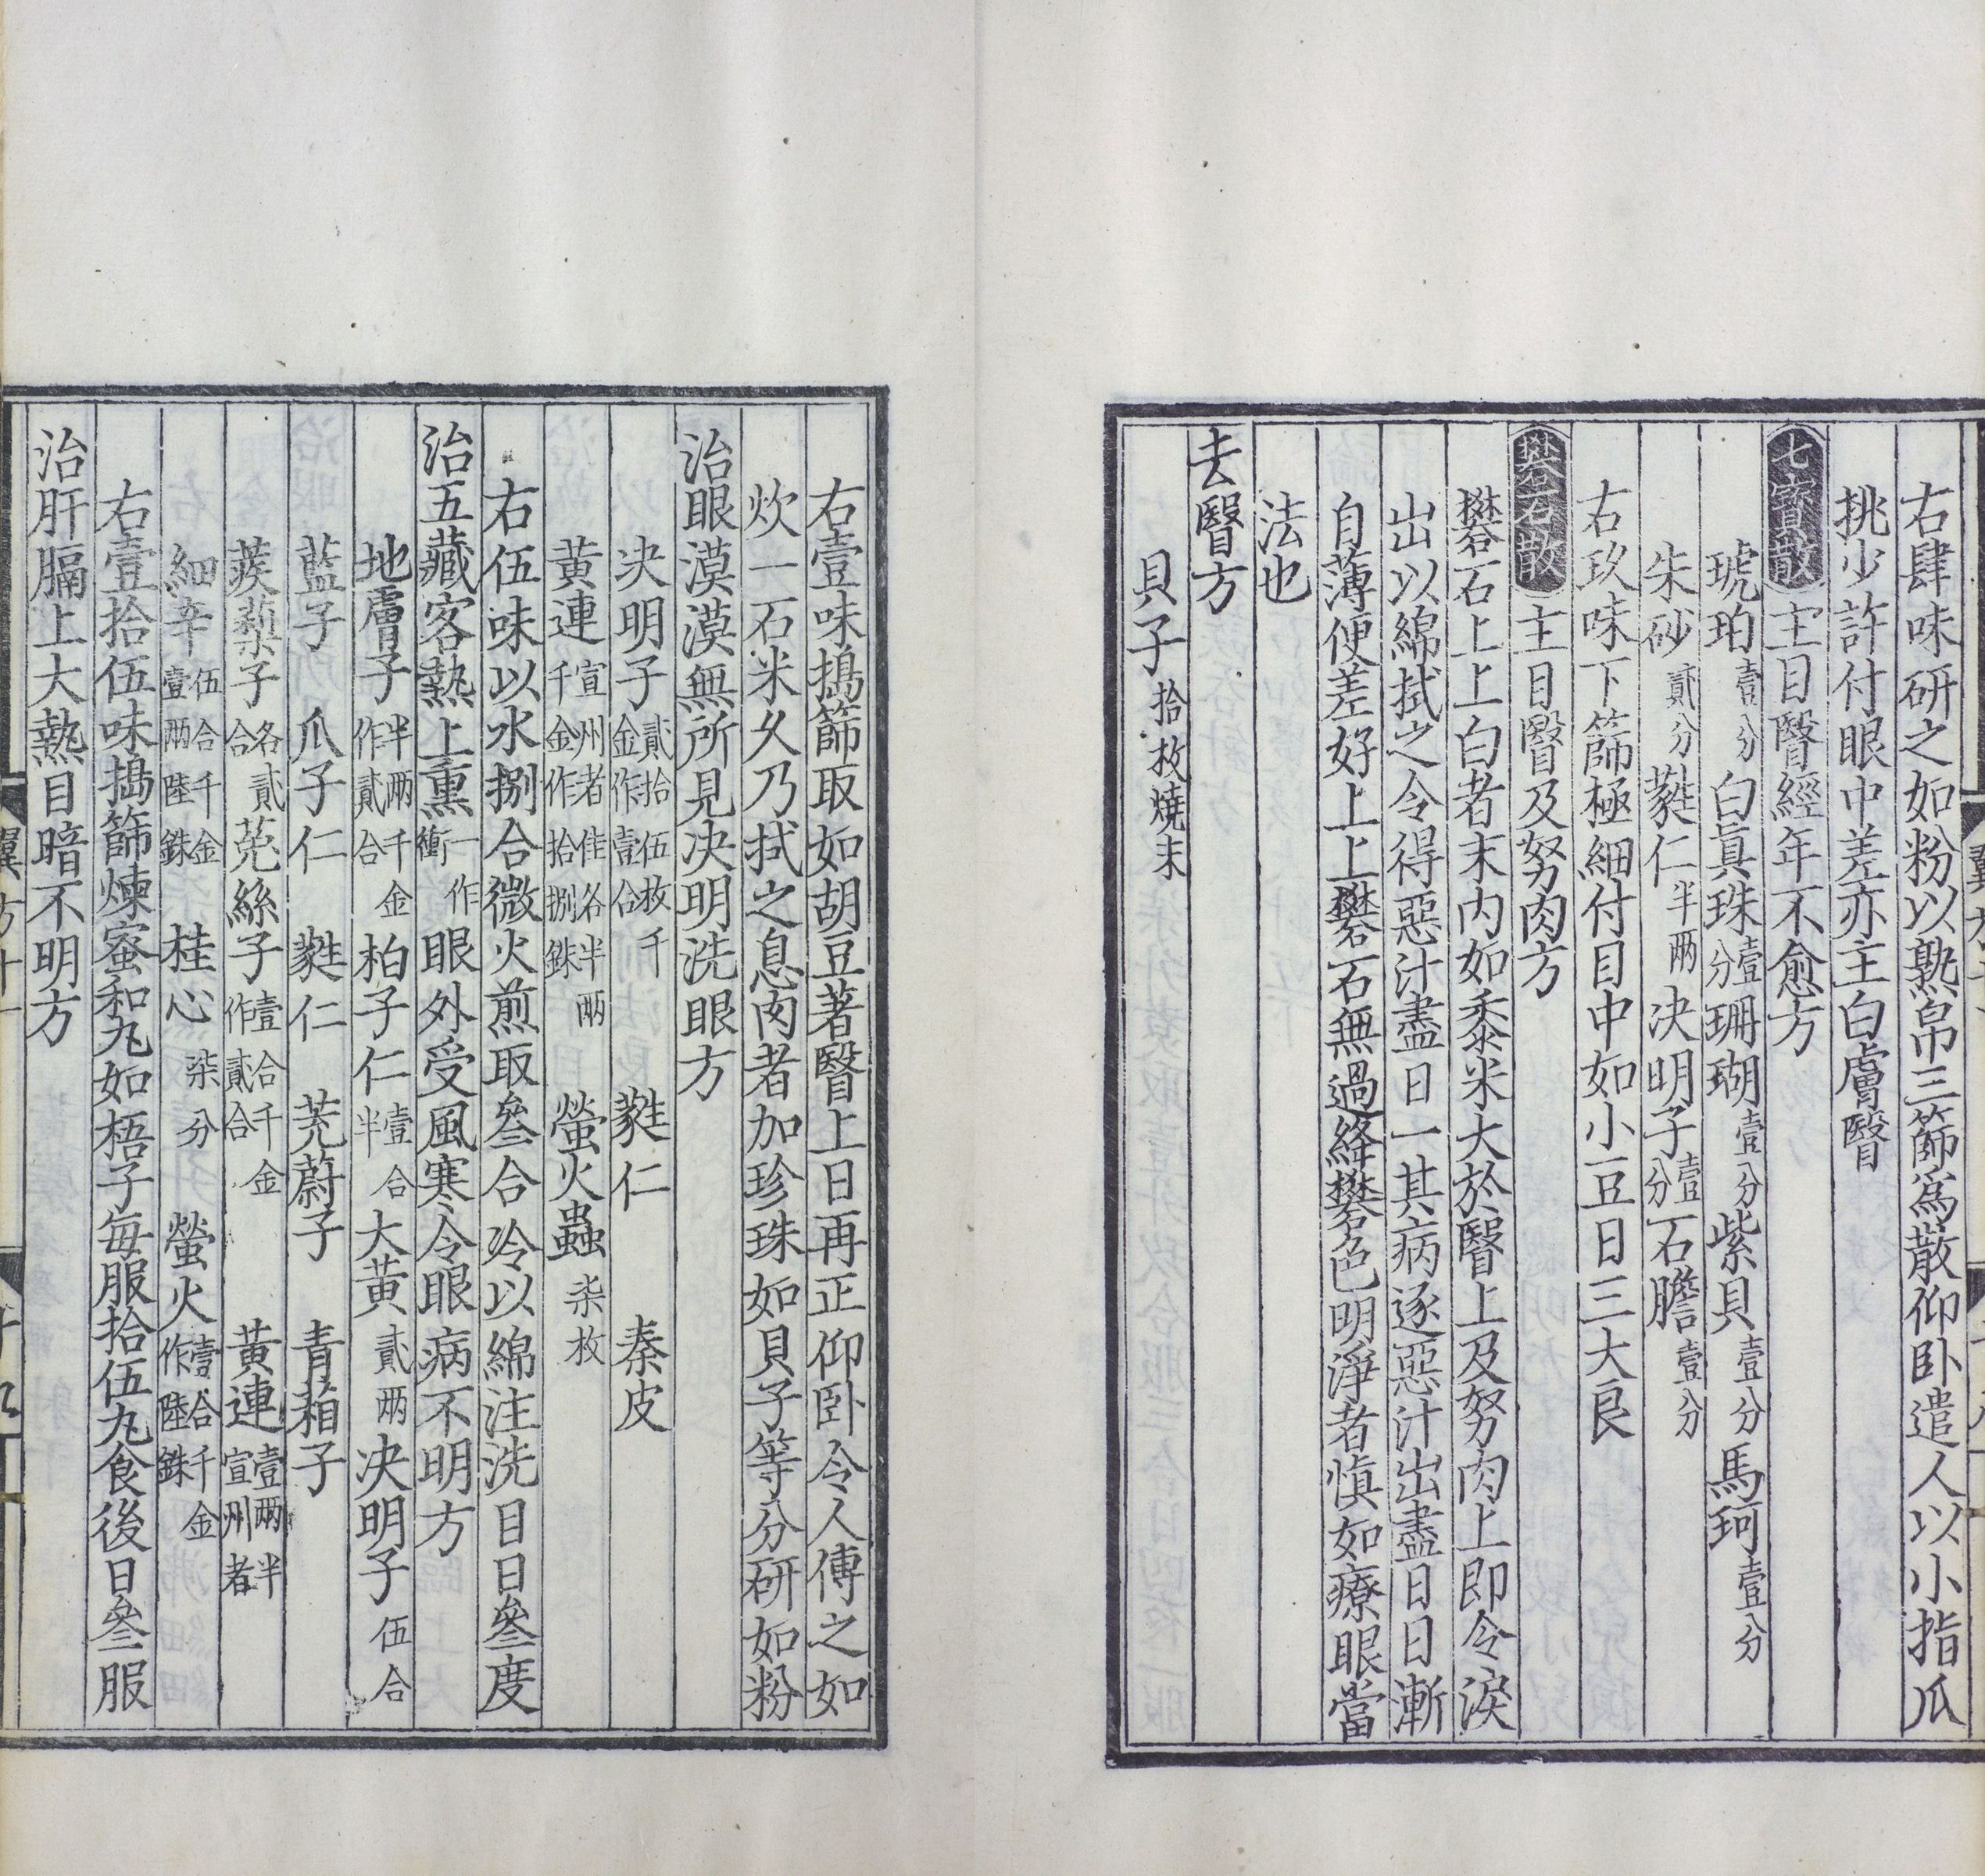 右肆味研之如粉以熟帛三篩爲散仰卧遣人以小指爪
挑少許付眼中差亦主白膚瞖
七寳散主目瞖經年不愈方
琥珀壹分白眞珠壹分珊瑚壹分紫貝壹分馬珂壹分
朱砂貳分蕤仁半兩決明子壹分石膽壹分
右玖味下篩極細付目中如小豆日三大良
礬石散主目瞖及努肉方
礬石上上白者末内如黍米大於瞖上及努肉上即令淚
出以綿拭之令得惡汁盡日一其病逐惡汁出盡日日漸
自薄便差好上上礬石無過絳礬色明淨者慎如療眼當
法也
去瞖方
貝子拾枚燒末
右壹味擣篩取如胡豆著瞖上日再正仰卧令人傅之如
炊一石米久乃拭之息肉者加珍珠如貝子等分研如粉
治眼漠漠無所見決明洗眼方
決明子貳拾伍枚千金作壹合 蕤仁 秦皮
黄連宣州者佳各半兩千金作拾捌銖 螢火蟲柒枚
右伍味以水捌合微火煎取叄合冷以綿注洗目日叄度
治五藏客熱上熏一作衝眼外受風寒令眼病不明方
地膚子半兩千金作貳合柏子仁壹合半大黄貳兩決明子伍合
藍子 瓜子仁 蕤仁 茺蔚子 青葙子
蒺䔧子各貳合菟絲子壹合千金作貳合 黄連壹兩半宣州者
細辛伍合千金壹兩陸銖 桂心柒分 螢火壹合千金作陸銖
右壹拾伍味擣篩煉蜜和丸如梧子每服拾伍丸食後日叄服
治肝膈上大熱目暗不明方